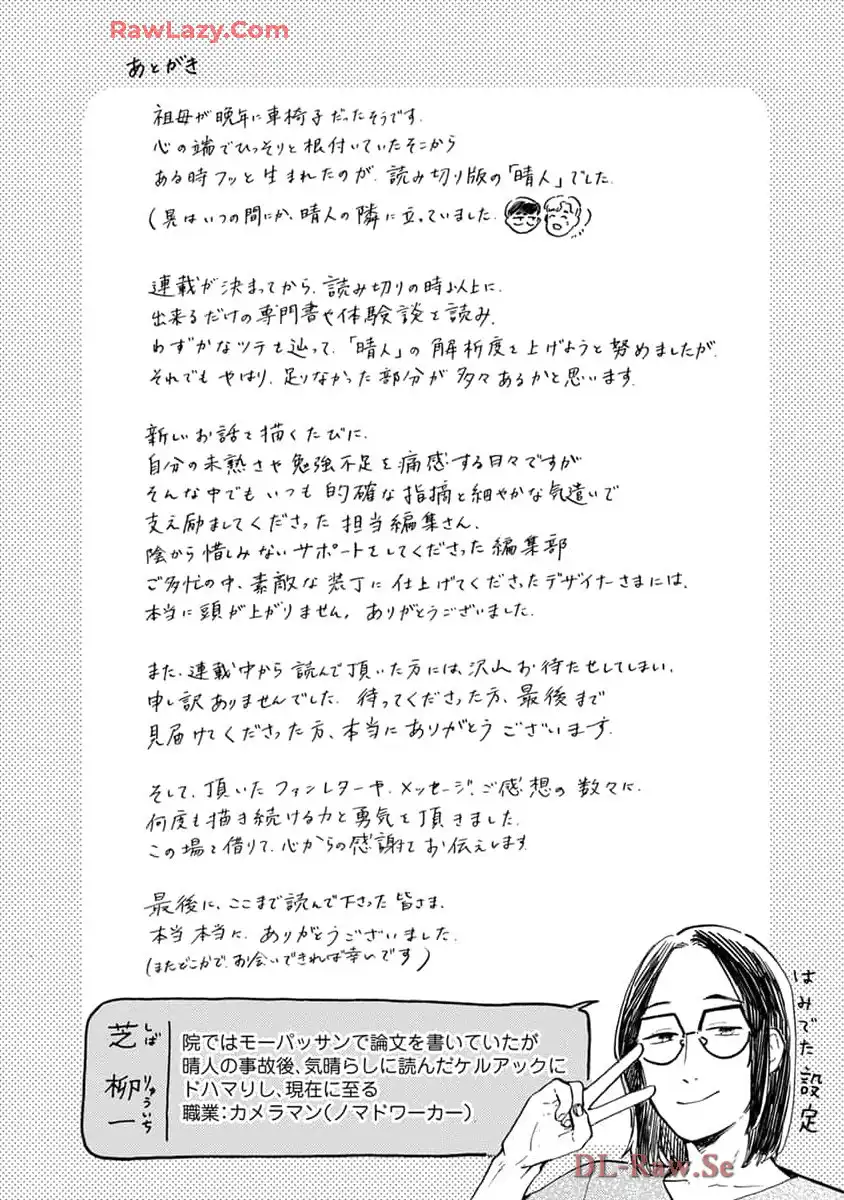 RawLazy.Com
あとがき
祖母が晩年に車椅子だったそうです.
心の端でひっそりと根付いていたそこから
ある時フッと生まれたのが、読み切り版の「晴人」でした.
(晃はいつの間にか、晴人の隣に立っていました.)
連載が決まってから、読み切りの時以上に、
出来るだけの専門書や体験談を読み、
わずかなツテを辿って、「晴人」の解析度を上げようと努めましたが、
それでもやはり、足りなかった部分が多々あるかと思います.
新しいお話を描くたびに、
自分の未熟さや勉強不足を痛感する日々ですが
そんな中でもいつも的確な指摘と細やかな気遣いで
支え励ましてくださった担当編集さん、
陰から惜しみないサポートをしてくださった編集部
ご多忙の中、素敵な装丁に仕上げてくださったデザイナーさまには、
本当に頭が上がりません。ありがとうございました.
また、連載中から読んで頂いた方には、沢山お待たせしてしまい、
申し訳ありませんでした. 待ってくださった方、最後まで
見届けてくださった方、本当にありがとうございます.
そして、頂いたファンレターや、メッセージ、ご感想の数々に、
何度も描き続ける力と勇気を頂きました.
この場を借りて、心からの感謝をお伝えします
最後に、ここまで読んで下さった皆さま、
本当本当に、ありがとうございました.
(またどこかで、お会いできれば幸いです)
はみでた設定
芝 柳一
しば りゅういち
院ではモーパッサンで論文を書いていたが
晴人の事故後、気晴らしに読んだケルアックに
ドハマりし、現在に至る
職業：カメラマン(ノマドワーカー)
DL-Raw.Se